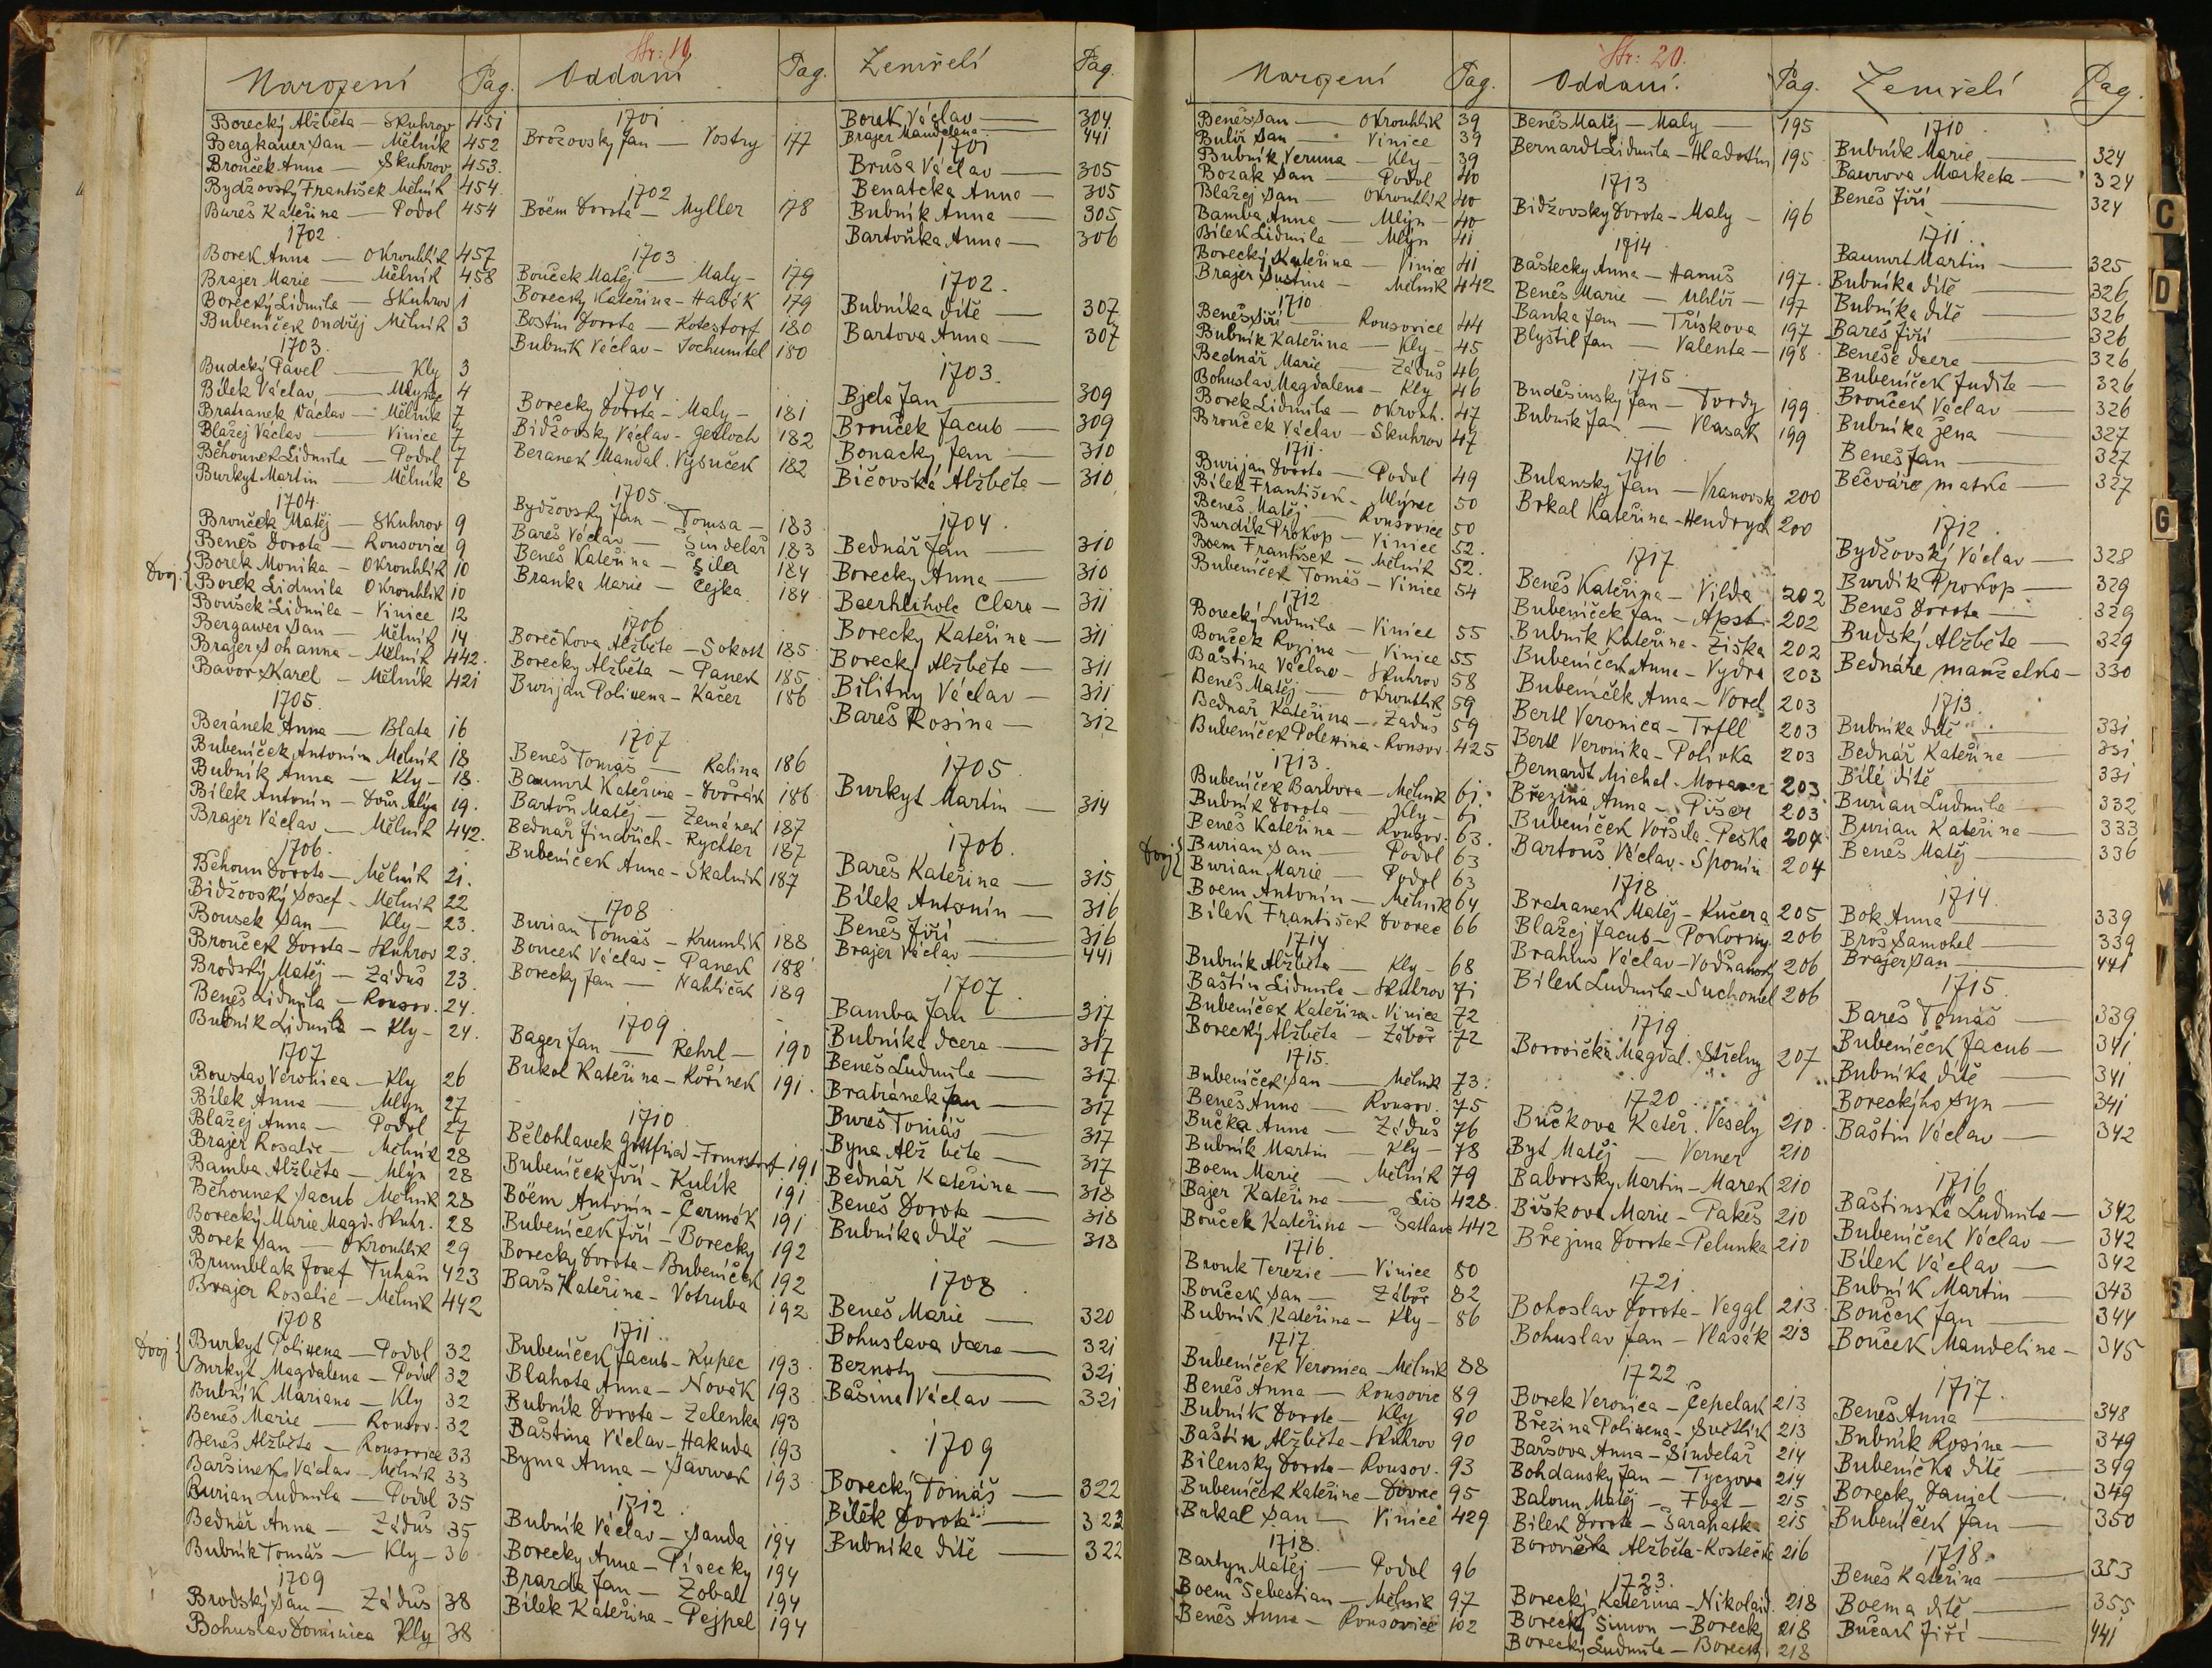 Str: 19.
Narození Pag.
Borecký Alžběta — Skuhrov 451
Bergkauer Jan — Mělník 452
Brouček Anna — Skuhrov 453.
Bydžovský František Mělník 454.
Bureš Kateřina — Podol 454
1702.
Borek Anna — Okrouhlík 457
Brajer Marie — Mělník 458
Borecký Lidmila — Skuhrov 1
Bubeníček Ondřej Mělník 3
1703.
Budcký Pavel — Kly 3
Bílek Václav, — Mlýnec 4
Bratranek Vaclav — Mělník 7
Blažej Václav — Vinice 7
Běhounek Lidmila — Podol 7
Burkyt Martin — Mělník 8
1704.
Brouček Matěj — Skuhrov 9
Beneš Dorota — Rousovice 9
Dvoj. { Borek Monika — Okrouhlík 10
Borek Lidmila Okrouhlík 10
Boušek Lidmila — Vinice 12
Bergawer Jan — Mělník 14
Brajer Johanna — Mělník 442.
Bavor Karel — Mělník 421
1705.
Beránek Anna — Blata 16
Bubeníček Antonín Mělník 18
Bubník Anna — Kly — 18.
Bílek Antonín — Dour Mlýn 19.
Brajer Václav — Mělník 442.
1706.
Běhoun Dorota — Mělník 21.
Bidžovský Josef — Mělník 22
Bousek Jan — Kly — 23.
Brouček Dorota — Skuhrov 23.
Brodský Matěj — Záduš 23.
Beneš Lidmila — Rousov. 24.
Bubník Lidmila — Kly — 24.
1707
Bouslav Veronica — Kly 26
Bílek Anna — Mlýn 27
Blažej Anna — Podol 27
Brajer Rosalie — Mělník 28
Bamba Alžběta — Mlýn 28
Běhounek Jacub Mělník 28
Borecký Marie Magd. Skuhr. 28
Borek Jan — Okrouhlík 29
Brumblak Josef Tuhaň 423
Brajer Rosalie — Mělník 442
1708
Dvoj { Burkyt Polixena — Podol 32
Burkyt Magdalena — Podol 32
Bubník Mariana — Kly 32
Beneš Marie — Rousov. 32
Beneš Alžběta — Rousovice 33
Baršinek Václav — Mělník 33
Burian Ludmila — Podol 35
Bednář Anna — Záduš 35
Bubník Tomáš — Kly — 36
1709
Brodský Jan — Záduš 38
Bohuslav Dominica Kly 38
Oddaní Pag.
1701
Brožovsky Jan — Vostry 177
1702
Böem Dorota — Myller 178
1703
Bouček Matěj — Maly — 179
Borecky Kateřina — Habík 179
Bostin Dorota — Kotestorf 180
Bubnik Václav — Jochumtal 180
1704
Borecky Dorota — Maly — 181
Bidžovsky Václav — Gerloch 182
Beranek Mandal. Vysuček 182
1705
Bydžovsky Jan — Tomsa — 183
Bareš Václav — Šindelář 183
Beneš Kateřina — Šiler 184
Branka Marie — Čejka 184
1706
Borečkova Alžběta — Sokoll 185.
Borecky Alžběta — Panek 185.
Burijan Polixena — Kačer 186
1707
Beneš Tomáš — Kalina 186
Baumrt Kateřina — Dvořák 186
Bartoň Matěj — Zemánek 187
Bednář Jindřich — Rychter 187
Bubeníček Anna — Skalnik 187
1708
Burian Tomáš — Krumlík 188
Boucek Václav — Panek 188
Borecky Jan — Nahlíčák 189
1709
Bager Jan — Rehrl — 190
Bukol Kateřina — Kořínek 191.
1710
Bělohlavek Gottfrid — Fomostorf 191
Bubeníček Jiří — Kulík 191
Böem Antonín — Čermák 191
Bubeníček Jiří — Borecky 192
Borecky Dorota — Bubeníček 192
Barš Kateřina — Votruba 192
1711.
Bubeníček Jacub — Kupec 193
Blahota Anna — Novák 193
Bubník Dorota — Zelenka 193
Baština Václav — Hakuda 193
Byma Anna — Savurek 193
1712
Bubník Václav — Janda 194
Borecky Anna — Písecky 194
Brazda Jan — Zobal 194
Bílek Kateřina — Pejpal 194
Zemřelí Pag.
Borek Václav — 304
Brajer Mandelena 441
1701
Bruša Václav — 305
Benatcka Anna — 305
Bubník Anna — 305
Bartoňka Anna — 306
1702.
Bubníka dítě — 307
Bartova Anna — 307
1703.
Bjela Jan — 309
Brouček Jacub — 309
Bonacky Jan — 310
Bičovská Alžběta — 310
1704.
Bednář Jan — 310
Borecky Anna — 310
Baerhlihole Clara — 311
Borecky Kateřina — 311
Borecky Alžběta — 311
Bílitny Václav — 311
Bareš Rosina — 312
1705.
Burkyt Martin — 314
1706.
Bareš Kateřina — 315
Bílek Antonín — 316
Beneš Jiří — 316
Brajer Václav — 441
1707.
Bamba Jan — 317
Bubníka dcera — 317
Beneš Ludmila — 317
Bratránek Jan — 317
Bureš Tomáš — 317
Byna Alžběta — 317
Bednář Kateřina — 318
Beneš Dorota — 318
Bubníka dítě — 318
1708.
Beneš Marie — 320
Bohuslava dcera — 321
Beznoty — 321
Bašina Václav — 321
1709
Borecký Tomáš — 322
Bílek Dorota — 322
Bubníka dítě — 322
Str: 20.
Narození Pag.
Beneš Jan — Okrouhlik 39
Bulíř Jan — Vinice 39
Bubník Veruna — Kly — 39
Bozak Jan — Podol 40
Blažej Jan — Okrouhlík 40
Bamba Anna — Mlýn — 40
Bílek Lidmila — Mlýn 41
Borecký Kateřina — Vinice 41
Brajer Justina — Mělník 442
1710
Beneš Jiří — Rousovice 44
Bubník Kateřina — Kly — 45
Bednář Marie — Záduš 46
Bohuslav Magdalena — Kly 46
Borek Lidmila — Okrouh. 47
Brouček Václav — Skuhrov 47
1711.
Burijan Dorota — Podol 49
Bílek František — Mlýnec 50
Beneš Matěj — Rousovice 50
Burdík Prokop — Vinice 52.
Boem František — Mělník 52.
Bubeníček Tomáš — Vinice 54
1712
Borecký Ludmila — Vinice 55
Bouček Rozina — Vinice 55
Baština Václav — Skuhrov 58
Beneš Matěj — Okrouhlík 59
Bednář Kateřina — Zaduš 59
Bubeníček Polexina — Rousov. 425
1713.
Bubeníček Barbora — Mělník 61.
Bubník Dorota — Kly — 61
Beneš Kateřina — Rousov. 63.
Dvoj { Burian Jan — Podol 63
Burian Marie — Podol 63
Boem Antonín — Mělník 64
Bílek František Dvorec 66
1714
Bubník Alžběta — Kly — 68
Baštin Lidmila — Skuhrov 71
Bubeníček Kateřina — Vinice 72
Borecký Alžběta — Zábor 72
1715.
Bubeníček Jan — Mělník 73.
Beneš Anna — Rousov. 75
Bučka Anna — Záduš 76
Bubník Martin — Kly — 78
Boem Marie — Mělník 79
Bajer Kateřina — Lis 428
Bouček Kateřina — Šatlava 442
1716.
Brouk Terezie — Vinice 80
Bouček Jan — Zábor 82
Bubník Kateřina — Kly — 86
1717.
Bubeníček Veronica — Mělník 88
Beneš Anna — Rousovic 89
Bubník Dorota — Kly 90
Baštin Alžběta — Skuhrov 90
Bilensky Dorota — Rousov. 93
Bubeníček Kateřina — Dvorec 95
Brkal Jan — Vinice 429
1718.
Bartyn Matěj — Podol 96
Boem Sebestian — Mělník 97
Beneš Anna — Rousovice 102
Oddaní. Pag.
Beneš Matěj — Maly — 195
Bernardt Lidmila — Hladostin 195
1713
Bidžovsky Dorota — Maly — 196
1714
Baštecky Anna — Hanuš 197.
Beneš Marie — Uhlíř — 197
Banka Jan — Tříškova 197
Blyštil Jan — Valenta — 198.
1715.
Buděsinsky Jan — Tvrdy 199
Bubník Jan — Vlasak 199
1716
Bulansky Jan — Vranovsk 200
Brkal Kateřina — Hendrych 200
1717
Beneš Kateřina — Vilda 202
Bubeníček Jan — Apst. 202
Bubník Kateřina — Žiška 202
Bubeníček Anna — Vydra 203
Bubeníček Anna — Vorel 203
Bertl Veronica — Trfll 203
Bertl Veronika — Polívka 203
Bernardt Michal — Moravec 203.
Březina Anna — Pišer 203
Bubeníček Voršila — Peška 204.
Bartouš Václav — Šponin 204
1718
Bratranek Matěj — Kučera 205
Blažej Jacub — Pokorny 206
Brahm Václav — Vodňansky 206
Bílek Ludmila — Suchomel 206
1719
Borovička Magdal. Střelny 207
1720
Bučkova Kateř. Vesely 210
Byt Matěj — Verner 210
Baborsky Martin — Marek 210
Biškova Marie — Pakeš 210
Březina Dorota — Pelunka 210
1721
Bohoslav Dorota — Veggl 213
Bohuslav Jan — Vlasák 213
1722
Borek Veronica — Čepelak 213
Březina Polixena — Světlik 213
Baršova Anna — Šindelař 214
Bohdansky Jan — Tyczova 214
Baloun Matěj — Fbgt — 215
Bílek Dorota — Šarapatka 215
Borovička Alžběta — Kostečka 216
1723.
Borecký Kateřina — Nikolaid. 218
Borecky Šimon — Borecky 218
Borecky Ludmila — Borecky 218
Zemřelí Pag.
1710
Bubník Marie — 324
Baurova Marketa — 324
Beneš Jiří — 324
1711.
Baumrt Martin — 325
Bubníka dítě — 326
Bubníka dítě — 326
Bareš Jiří — 326
Beneše dcera — 326
Bubeníček Judita — 326
Brouček Václav — 326
Bubníka žena — 327
Beneš Jan — 327
Bečváře matka — 327
1712
Bydžovský Václav — 328
Burdík Prokop — 329
Beneš Dorota — 329
Budský Alžběta — 329
Bednáře manželka — 330
1713.
Bubníka dítě — 331
Bednář Kateřina — 331
Bílé dítě — 331
Burian Ludmila — 332
Burian Kateřina — 333
Beneš Matěj — 336
1714.
Bok Anna — 339
Broš Samohel — 339
Brajer Jan — 441
1715.
Bareš Tomáš — 339
Bubeníček Jacub — 341
Bubníka dítě — 341
Boreckýho syn — 341
Baštin Václav — 342
1716
Baštinska Ludmila — 342
Bubeníček Václav — 342
Bílek Václav — 342
Bubník Martin — 343
Bouček Jan — 344
Bouček Mandelina — 345
1717.
Beneš Anna — 348
Bubník Rosina — 349
Bubeníčka dítě — 349
Borecky Danjel — 349
Bubeníček Jan — 350
1718.
Beneš Kateřina — 353
Boema dítě — 355
Bučark Jiří — 441
C
D
G
M
S